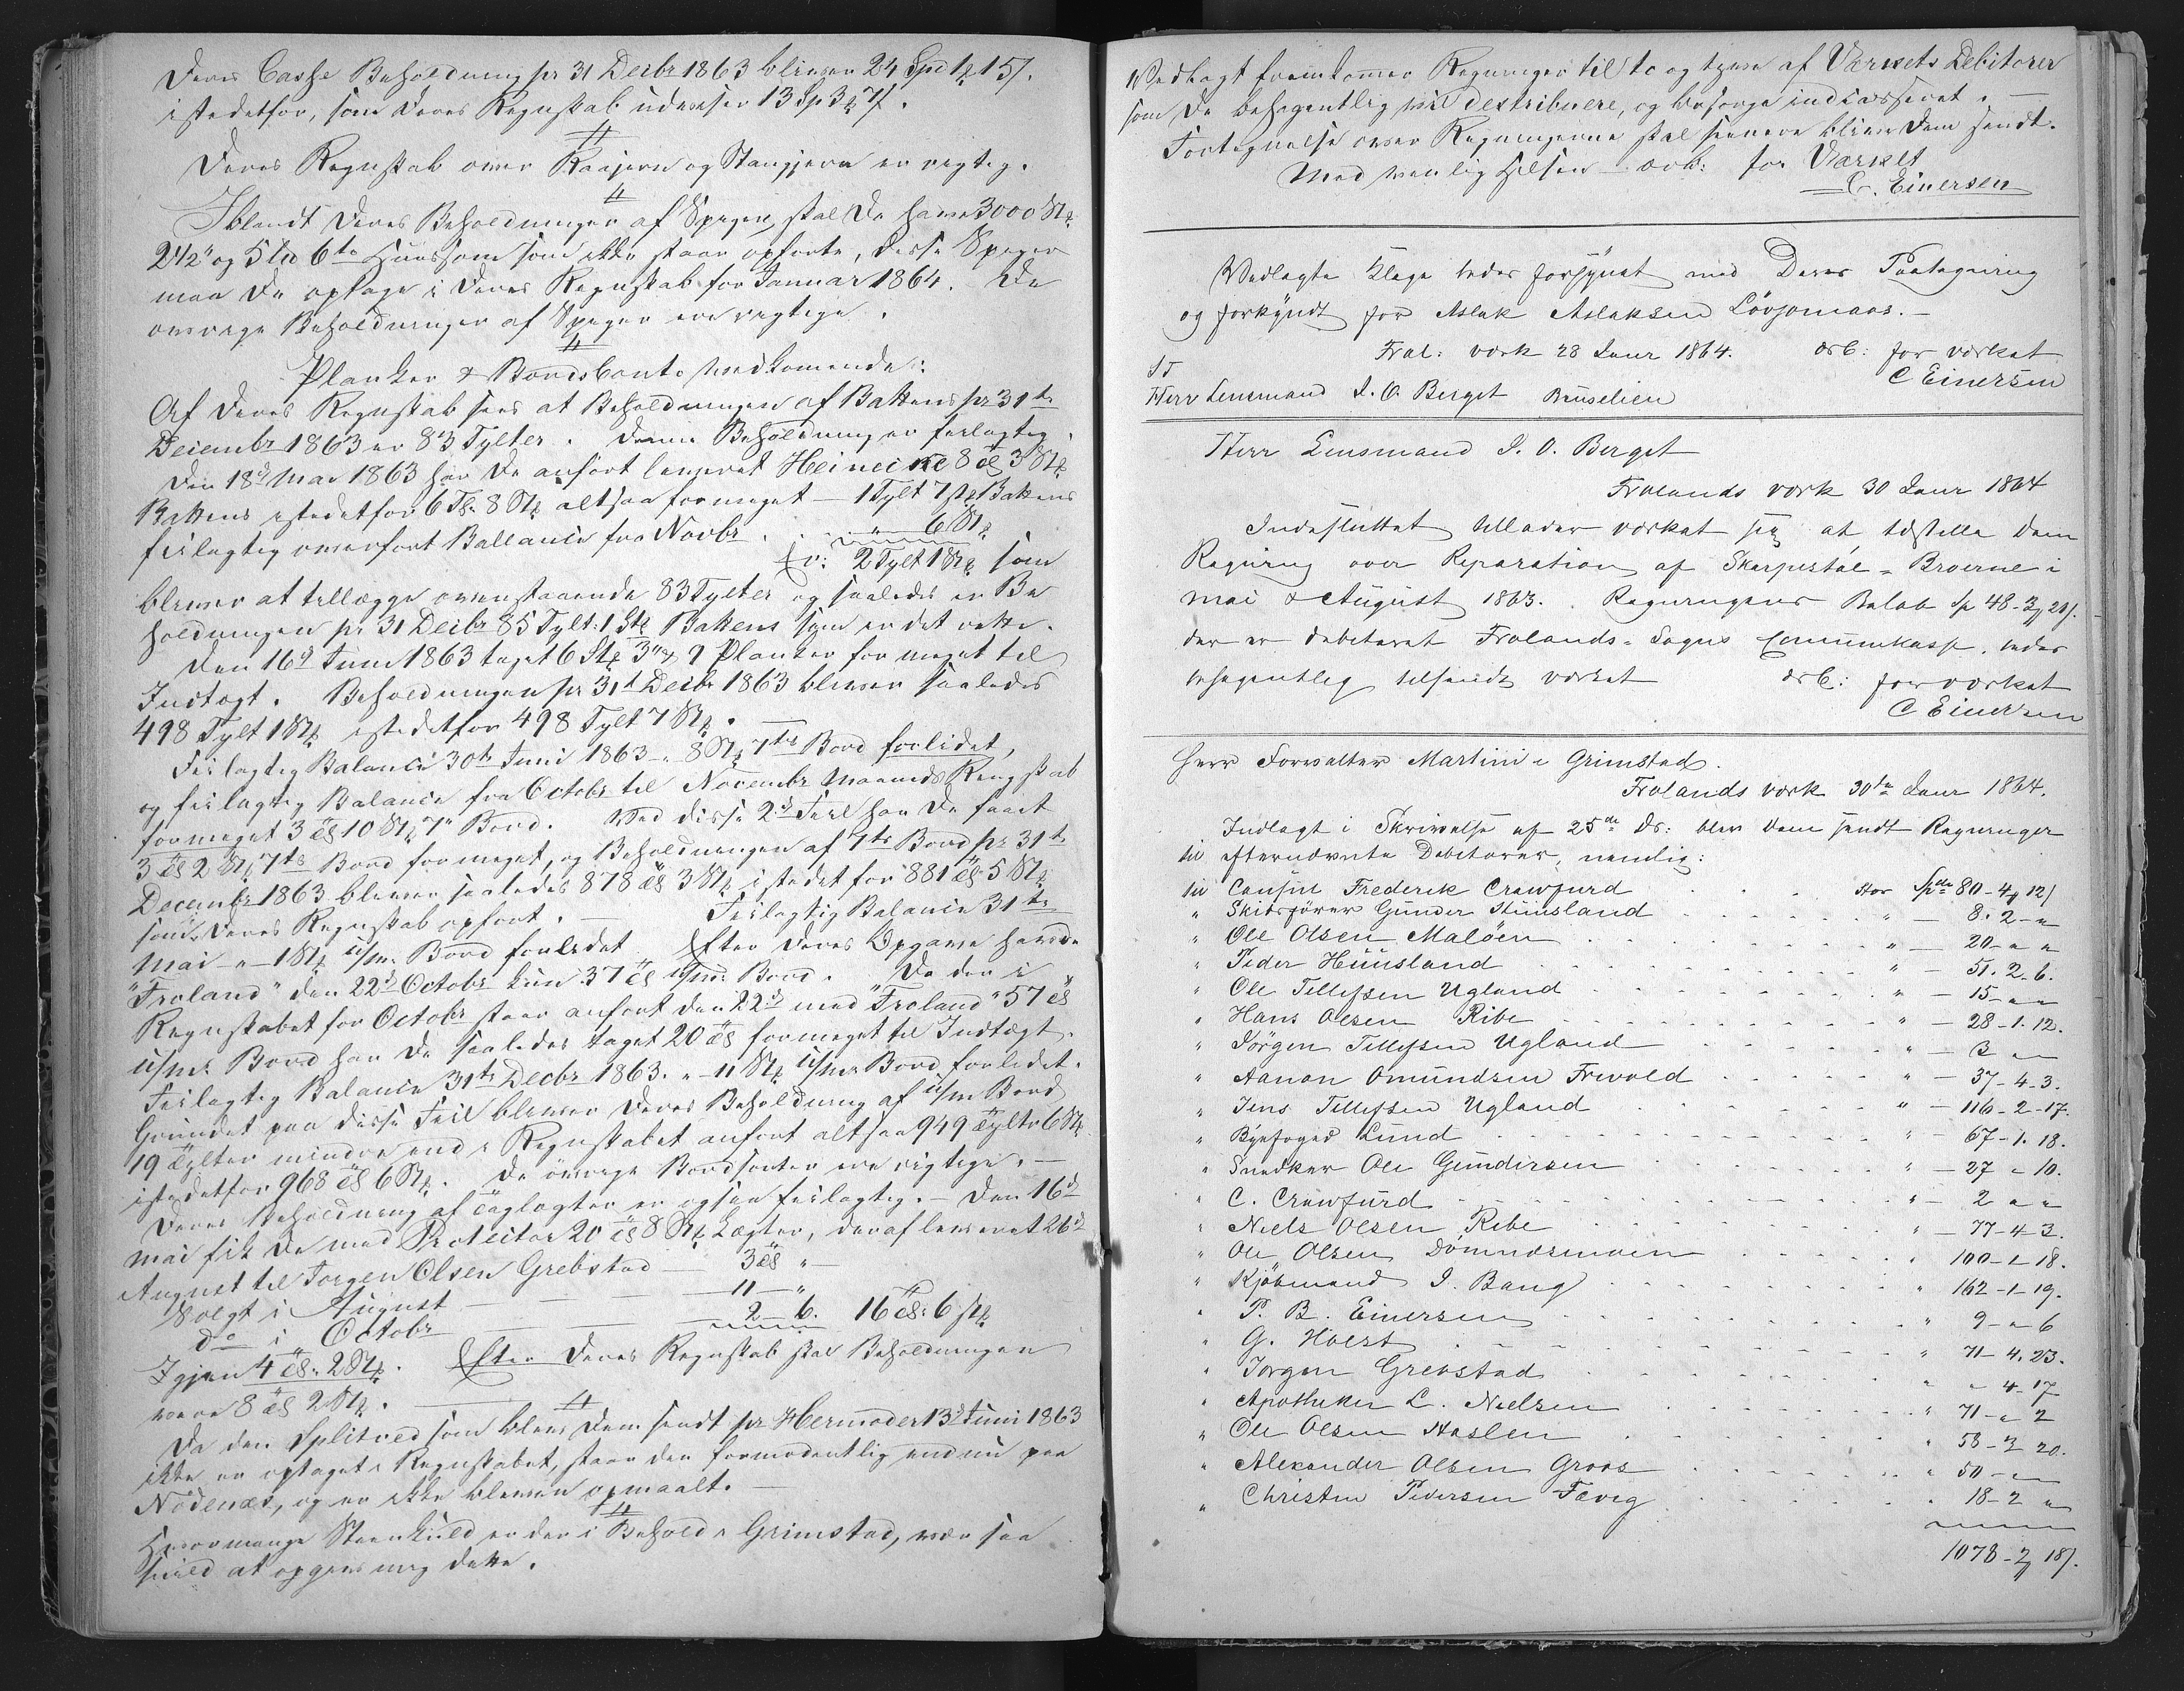 Deres Casse Beholdning pr 31 Decbr 1863 bliver 24 Spd 1 ꝑ 15 ſ.
istedetfor, som Deres Regnskab udviser 13 Sp 3 ꝑ 7 ſ.
Deres Regnskab over Raajern og Stangjern er rigtig.
Iblandt Deres Beholdninger af Speger, skal De have 3000 Stk
2 1/2" og 5 Stk 6te Huus som ikke staar opførte, disse Speger
maa De optage i Deres Regnskab for Januar 1864. De
øvrige Beholdninger af Speger ere rigtige.
Planker & Bordsconto vedkommende:
Af Deres Regnskab sees at Beholdningen af Battens pr 31te
Decembr 1863 er 83 Tylter. Denne Beholdning er feilagtig.
Den 18de Mai 1863 har De anført leveret Heinecke 8 Tlt 3 Stk
Battens istedetfor 6 Tlt. 8 Stk altsaa formeget — 1 Tylt 7 Stk Battens
feilagtig overført Ballance fra Novbr . . " 6 Stk
Er: 2 Tylt 1 Stk som
bliver at tillægge ovenstaaende 83 Tylter og saaledes er Be
holdningen pr 31 Decbr 85 Tylt: 1 Stk Battens som er det rette.
Den 16de Juni 1863 taget 6 Stk 3" & 9 Planker for meget til
Indtægt. Beholdningen pr 31t Decbr 1863 bliver saaledes
498 Tylt 1 Stk istedetfor 498 Tylt 7 Stk.
Feilagtig Balance 30te Juni 1863 — 8 Stk 7te Bord forlidet,
og feilagtig Balance fra Octobr til Novembr Maaneds Regnskab
formeget 3 Tlt 10 Stk 7" Bord. Ved disse 2de Feil har De faaet
3 Tlt 2 Stk 7te Bord formeget, og Beholdningen af 7te Bord pr 31te
Decembr 1863 bliver saaledes 878 Tlt 3 Stk istedetfor 881 Tlt 5 Stk
som Deres Regnskab opført. — Feilagtig Balance 31te
Mai — 1 Stk Bord forlidet Efter Deres Opgave havde
"Froland" den 22de Octobr kun 37 Tlt Bord. Da den i
Regnskabet for Octobr staar anført den 22de med "Froland" 57 Tlt
Bord har De saaledes taget 20 Tlt formeget til Indtægt.
Feilagtig Balance 31te Decbr 1863. — 11 Stk Bord forlidet.
Grundet paa disse Feil bliver Deres Beholdning af Bord
19 Tylter mindre end i Regnskabet anført altsaa 949 Tylter 6 Stk
istedetfor 968 Tlt 6 Stk. De øvrige Bordsorter ere rigtige. —
Deres Beholdning af Taglægter er ogsaa feilagtig. — Den 16de
Mai fik De med Protector 20 Tlt 8 Stk Lægter, deraf leveret 26de
August til Jørgen Olsen Grebstad — 3 Tlt "
Solgt i August — 11 — "
do i Octobr — 2 — 6. 16 Tlt. 6 Stk
Igjen 4 Tlt. 2 Stk. Efter Deres Regnskab skal Beholdningen
være 8 Tlt 2 Stk.
Da den Splitved som blev Dem sendt pr Hermoder 13de Juni 1863
ikke er optaget i Regnskabet, staar den formodentlig endnu paa
Nødenæs, og er ikke bleven opmaalt. —
Hvormange Steenkuld er der i Behold i Grimstad, vær saa
snild at opgive mig dette.
Vedlagt fremkommer Regninger til to og tyve af Værkets Debitorer
som De behagentlig vil destribuere, og besørge indcasseret. —
Fortegnelse over Regningerne skal senere blive Dem sendt.
Med venlig Hilsen — ærb: for Værket
C. Einersen
Vedlagte Klage bedes forsynet med Deres Paategning
og forkyndt for Aslak Aslaksen Lövjomaas. —
Frol: værk 28 Janr 1864. ærb: for værket
C Einersen
ST
Herr Lensmand I. O. Berget Bruselien
Herr Lensmand I. O. Berget
Frolands værk 30 Janr 1864
Indesluttet tillader værket sig at tilstille Dem
Regning over Reparation af Skarpestøl-Broerne i
Mai & August 1863. Regningens Beløb Sp 48-3 ꝑ 20 ſ.
der er debiteret Frolands-Sogns Communekasse, bedes
behagentlig tilsendt værket ærb: for værket
C Einersen
Herr Forvalter Martini i Grimstad.
Frolands værk 30te Janr 1864.
Indlagt i Skrivelse af 25de ds: blev Dem sendt Regninger
til efternævnte Debitorer, nemlig:
til Consul Frederik Crawfurd . . . stor Spdr 80-4 ꝑ 12 ſ
" Skibsfører Gunder Stuusland . . . " — 8. 2-"
" Ole Olsen Maløen . . . " — 20-" "
" Peder Huusland . . . " — 51. 2. 6.
" Ole Tellefsen Ugland . . . " — 15-" "
" Hans Olsen Ribe . . . " — 28-1. 12.
" Jörgen Tellefsen Ugland . . . " — 3 " "
" Aanon Omundsen Frivold . . . " — 37-4-3.
" Jens Tellefsen Ugland . . . " — 116-2-17.
" Byfoged Lund . . . " — 67-1. 18.
" Snedker Ole Gundersen . . . " — 27 " 10.
" C. Crawfurd . . . " — 2 " "
" Niels Olsen Ribe . . . " — 77-4 3.
" Ole Olsen Dömmesmoen . . . " 100-1 18.
" Kjöbmand I. Bang . . . " 162-1-19.
" P. B. Einersen . . . " 9-" 6
" G. Holst . . . " 71-4. 23.
" Jørgen Grebstad . . . " " 4-17
" Apotheker L. Nielsen . . . " 71-" 2
" Ole Olsen Haslen . . . " 58-3 20.
" Alexander Olsen Groos . . . " 50-" "
" Christen Pedersen Fevig . . . " 18-2 "
1078-3 ꝑ 18 ſ.